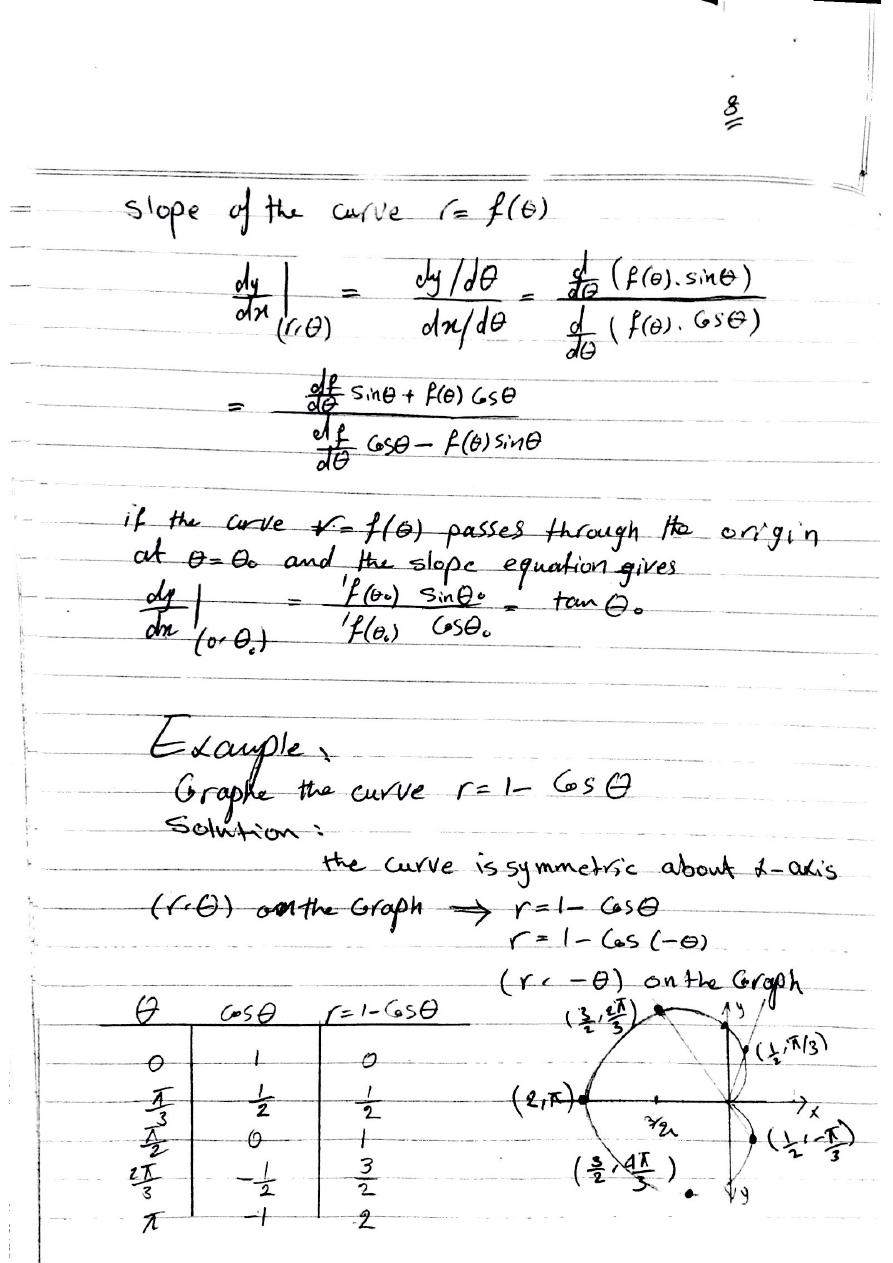 8
slope of the curve r = f(θ)
dy/dx |(r,θ) = (dy/dθ)/(dx/dθ) = (d/dθ (f(θ).sinθ))/(d/dθ (f(θ).Cosθ))
= (df/dθ sinθ + f(θ) Cosθ)/(df/dθ Cosθ - f(θ) sinθ)
if the curve r = f(θ) passes through the origin
at θ = θ₀ and the slope equation gives
dy/dx |(0, θ₀) = ('f(θ₀) Sinθ₀)/('f(θ₀) Cosθ₀) = tan θ₀
Example,
Graphe the curve r = 1 - Cos θ
Solution :
the curve is symmetric about x-axis
(r,θ) on the Graph ⇒ r = 1 - Cosθ
r = 1 - Cos (-θ)
(r, -θ) on the Graph
θ Cosθ r = 1 - Cosθ
0 1 0
π/3 1/2 1/2
π/2 0 1
2π/3 -1/2 3/2
π -1 2
(3/2, 2π/3)
y
(1/2, π/3)
(2, π)
x
(1/2, -π/3)
(3/2, 4π/3)
y